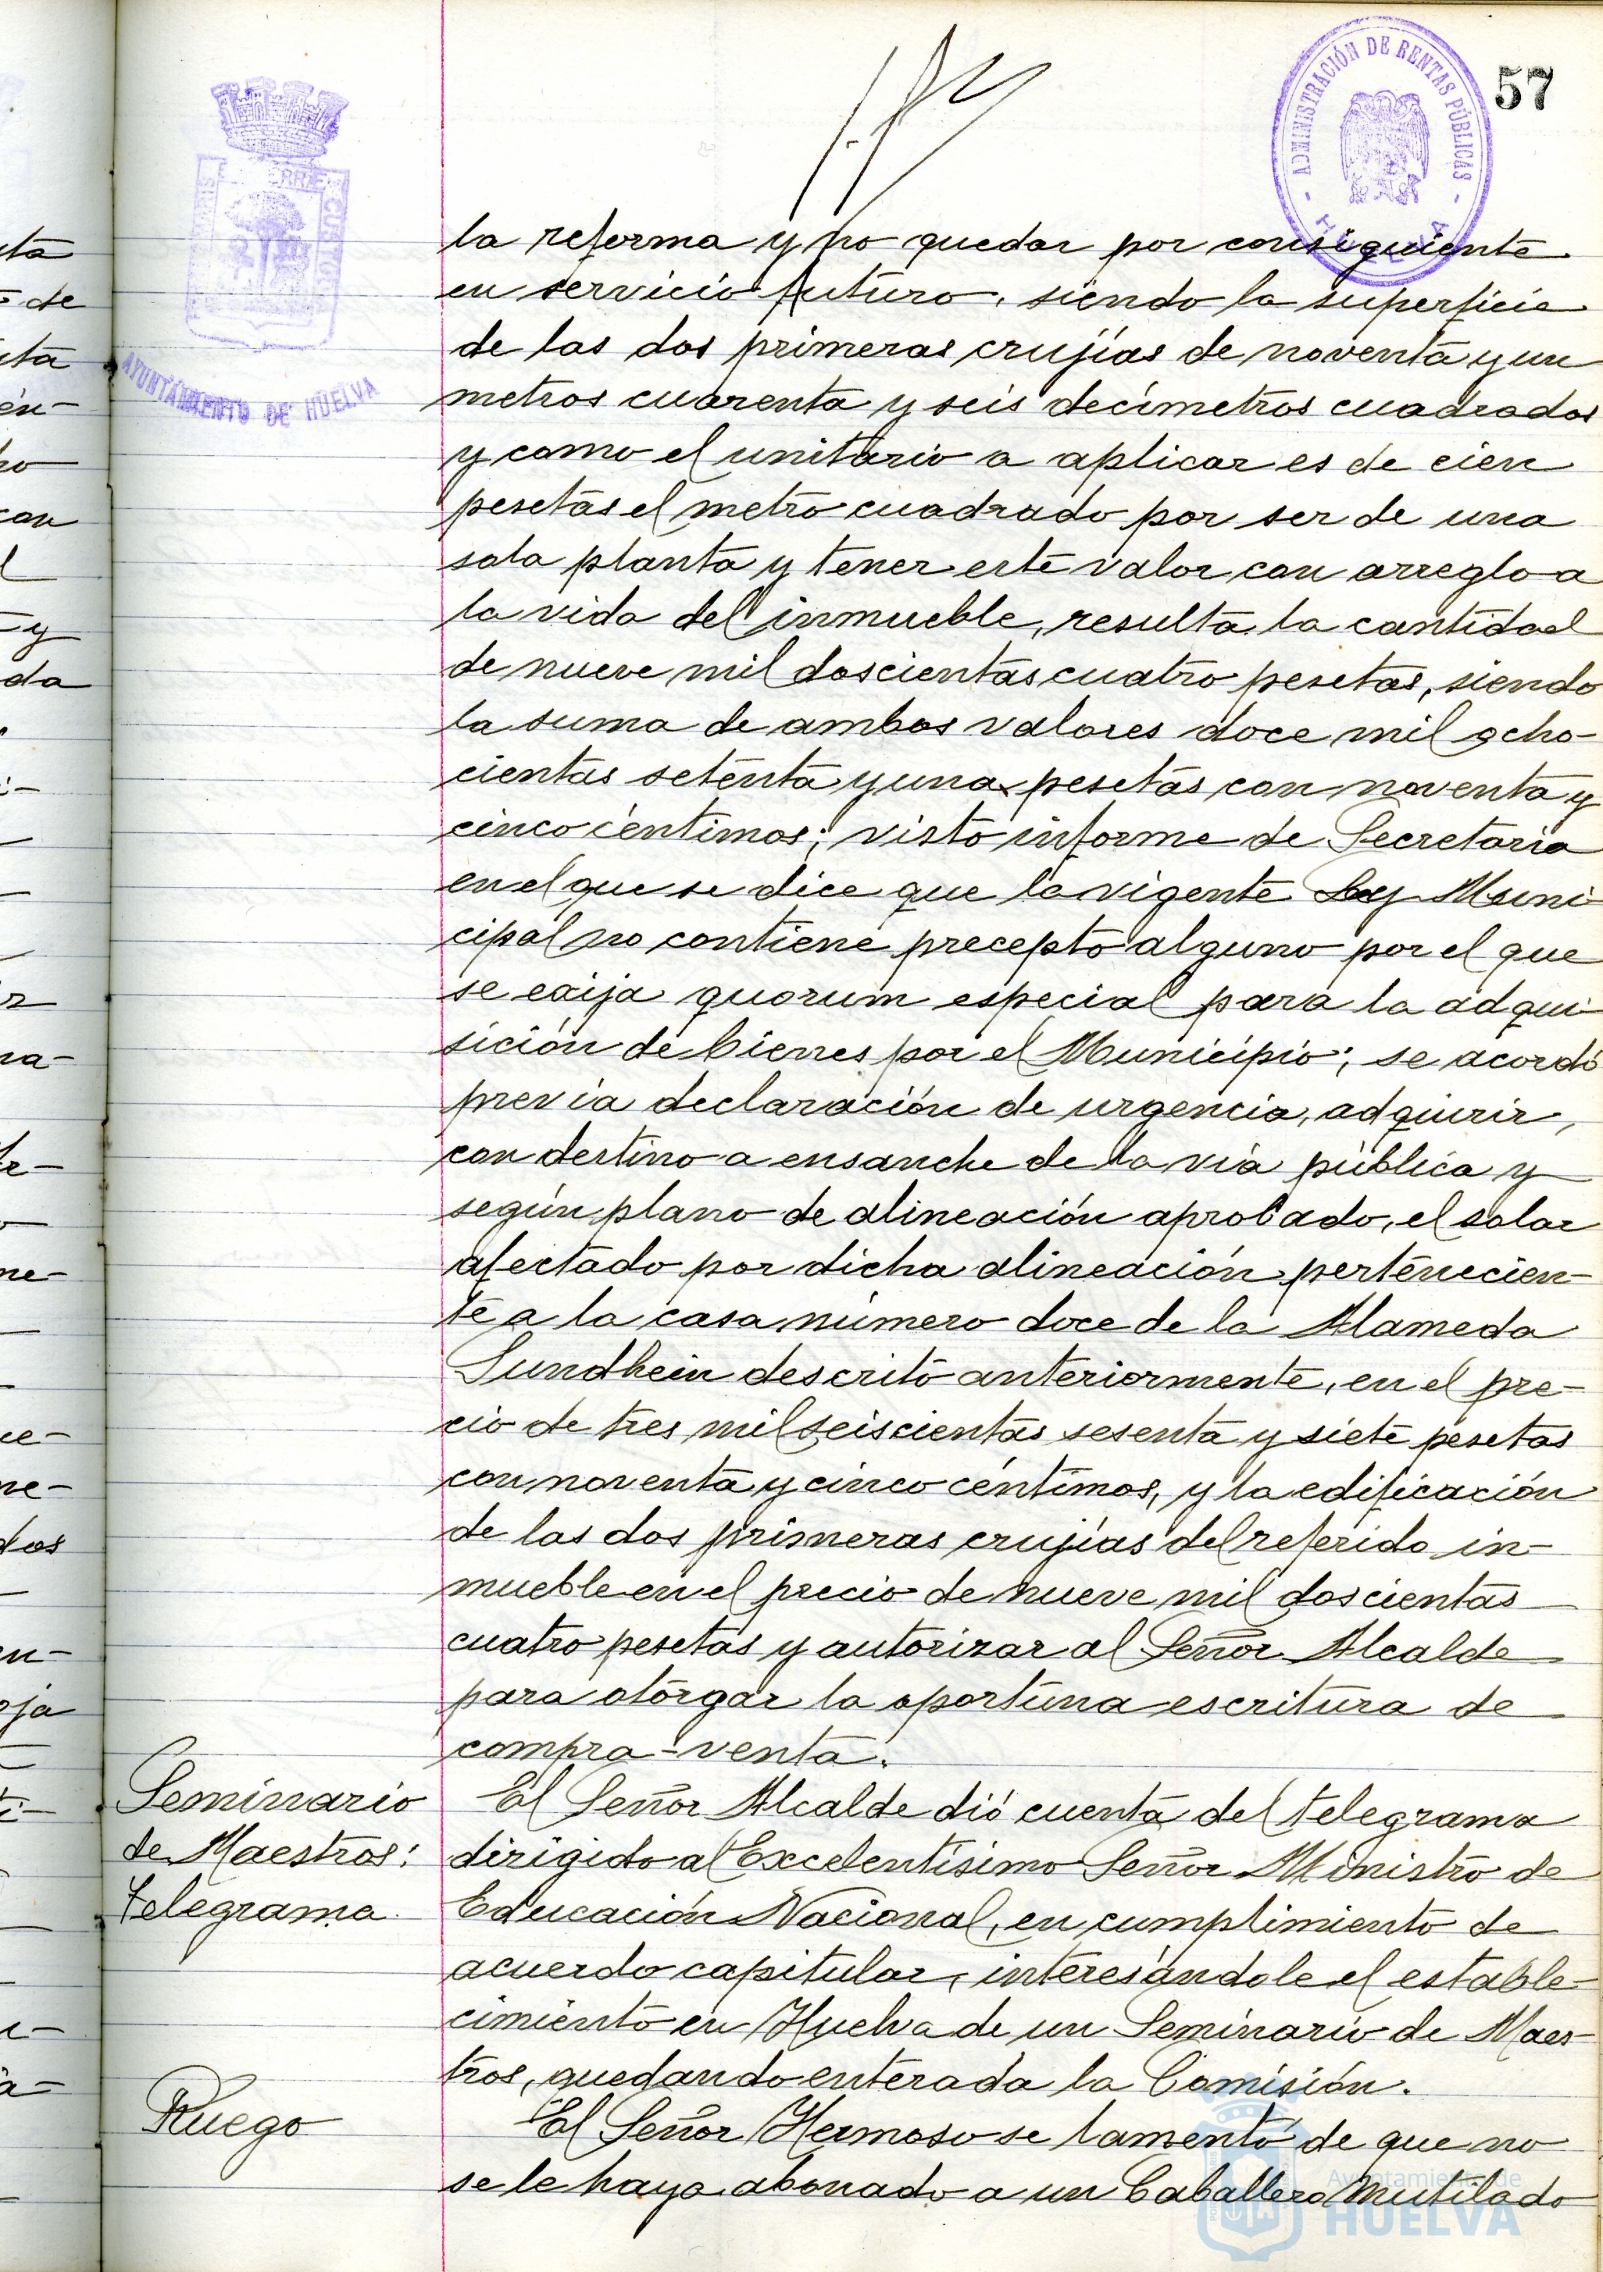 57
ADMINISTRACIÓN DE RENTAS PÚBLICAS
HUELVA
AYUNTAMIENTO DE HUELVA
la reforma y no quedar por consiguiente
en servicio futuro, siendo la superficie
de las dos primeras crujías de noventa y un
metros cuarenta y seis decímetros cuadrados
y como el unitario a aplicar es de cien
pesetas el metro cuadrado por ser de una
sola planta y tener este valor con arreglo a
la vida del inmueble, resulta la cantidad
de nueve mil doscientas cuatro pesetas, siendo
la suma de ambos valores doce mil ocho-
cientas setenta y una pesetas con noventa y
cinco céntimos; visto informe de Secretaria
en el que se dice que la vigente Ley Muni-
cipal no contiene precepto alguno por el que
se exija quorum especial para la adqui-
sición de bienes por el Municipio; se acordó
previa declaración de urgencia, adquirir,
con destino a ensanche de la vía pública y
según plano de alineación aprobado, el solar
afectado por dicha alineación pertenecien-
te a la casa número doce de la Alameda
Sundhein descrito anteriormente, en el pre-
cio de tres mil seiscientas sesenta y siete pesetas
con noventa y cinco céntimos, y la edificación
de las dos primeras crujías del referido in-
mueble en el precio de nueve mil doscientas
cuatro pesetas y autorizar al Señor Alcalde
para otorgar la oportuna escritura de
compra-venta.
Seminario
de Maestros:
telegrama.
El Señor Alcalde dió cuenta del telegrama
dirigido al Excelentísimo Señor Ministro de
Educación Nacional, en cumplimiento de
acuerdo capitular, interesándole el estable-
cimiento en Huelva de un Seminario de Maes-
tros, quedando enterada la Comisión.
Ruego
El Señor Hermoso se lamentó de que no
se le haya abonado a un Caballero Mutilado
Ayuntamiento de
HUELVA